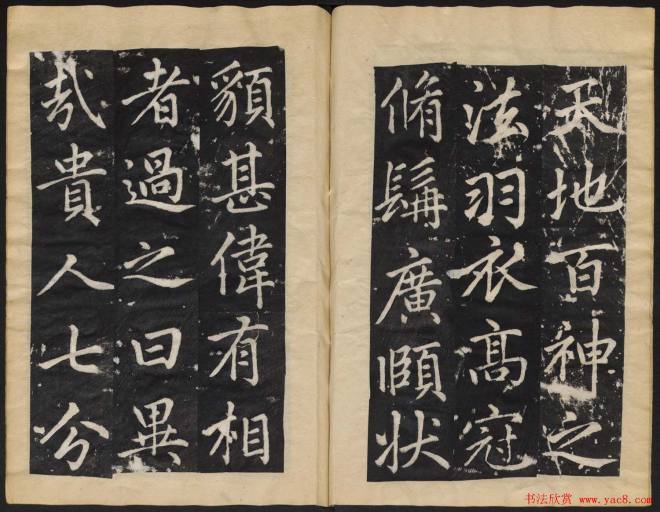 天地百神之
法羽衣高冠
脩髯廣頤狀
貌甚偉有相
者過之曰異
哉貴人七分
书法欣赏 www.yac8.com